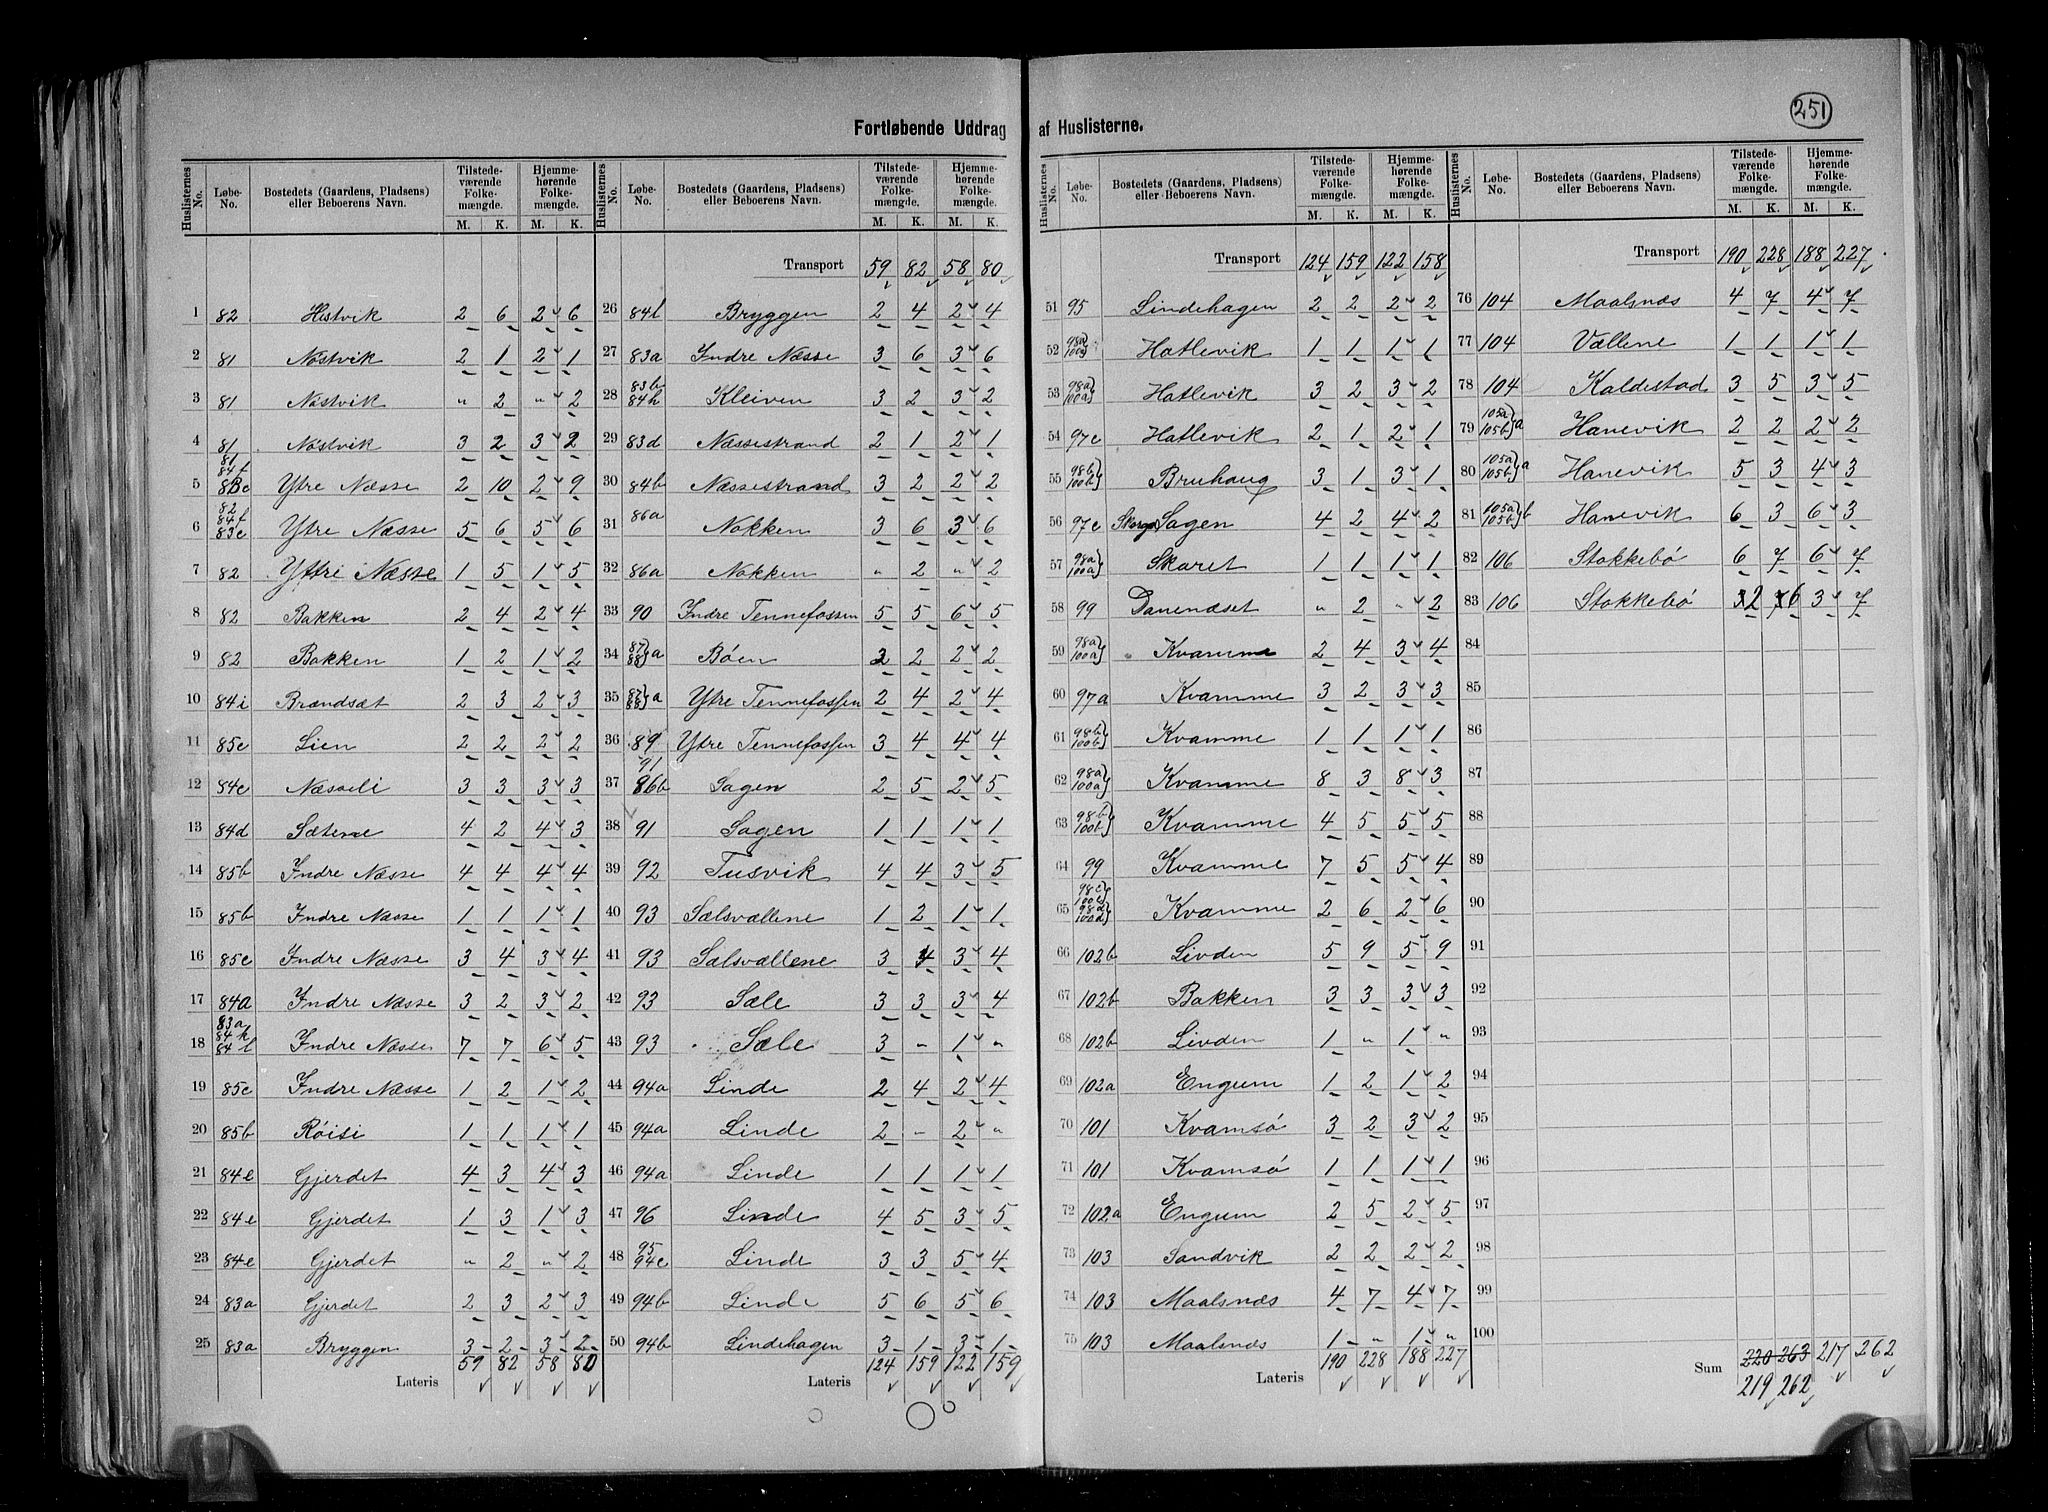 251
Fortløbende Uddrag af Huslisterne.
Huslisternes No. | Løbe-No. | Bostedets (Gaardens, Pladsens) eller Beboerens Navn. | Tilstedeværende Folkemængde. M. K. | Hjemmehørende Folkemængde. M. K.
1 82 Hestvik 2 6 2 6
2 81 Nøstvik 2 1 2 1
3 81 Nøstvik " 2 " 2
4 81 Nøstvik 3 2 3 2
5 81 84f 83c Ytre Næsse 2 10 2 9
6 82 84f 83c Ytre Næsse 5 6 5 6
7 82 Yttri Næsse 1 5 1 5
8 82 Bakken 2 4 2 4
9 82 Bakken 1 2 1 2
10 84i Brændsæt 2 3 2 3
11 85c Lien 2 2 2 2
12 84c Næsseli 3 3 3 3
13 84d Sætene 4 2 4 3
14 85b Indre Næsse 4 4 4 4
15 85b Indre Næsse 1 1 1 1
16 85c Indre Næsse 3 4 3 4
17 84a Indre Næsse 3 2 3 2
18 83a 84k 84l Indre Næsse 7 7 6 5
19 85c Indre Næsse 1 2 1 2
20 85b Røisi 1 1 1 1
21 84e Gjerdet 4 3 4 3
22 84e Gjerdet 1 3 1 3
23 84e Gjerdet " 2 " 2
24 83a Gjerdet 2 3 2 3
25 83a Bryggen 3 2 3 2
Lateris 59 82 58 80
Huslisternes No. | Løbe-No. | Bostedets (Gaardens, Pladsens) eller Beboerens Navn. | Tilstedeværende Folkemængde. M. K. | Hjemmehørende Folkemængde. M. K.
Transport 59 82 58 80
26 84l Bryggen 2 4 2 4
27 83a Indre Næsse 3 6 3 6
28 83b 84h Kleiven 3 2 3 2
29 83d Næssestrand 2 1 2 1
30 84b Næssestrand 3 2 2 2
31 86a Nokken 3 6 3 6
32 86a Nokken " 2 " 2
33 90 Indre Tennefossen 5 5 6 5
34 87 88}a Bøen 2 2 2 2
35 87 88}a Ytre Tennefossen 2 4 2 4
36 89 Ytre Tennefossen 3 4 4 4
37 91 86b Sagen 2 5 2 5
38 91 Sagen 1 1 1 1
39 92 Tusvik 4 4 3 5
40 93 Sælsvællene 1 2 1 1
41 93 Sælsvællene 3 4 3 4
42 93 Sæle 3 3 3 4
43 93 Sæle 3 - 1 "
44 94a Linde 2 4 2 4
45 94a Linde 2 - 2 "
46 94a Linde 1 1 1 1
47 96 Linde 4 5 3 5
48 95 94c Linde 3 3 5 4
49 94b Linde 5 6 5 6
50 94b Lindehagen 3 1 3 1
Lateris 124 159 122 159
Huslisternes No. | Løbe-No. | Bostedets (Gaardens, Pladsens) eller Beboerens Navn. | Tilstedeværende Folkemængde. M. K. | Hjemmehørende Folkemængde. M. K.
Transport 124 159 122 158
51 95 Lindehagen 2 2 2 2
52 98a 100a Hatlevik 1 1 1 1
53 98a} 100a} Hatlevik 3 2 3 2
54 97c Hatlevik 2 1 2 1
55 98b} 100b} Bruhaug 3 1 3 1
56 97c Sagen 4 2 4 2
57 98a} 100a} Skaret 1 1 1 1
58 99 Danenæset " 2 " 2
59 98a} 100a} Kvamme 2 4 3 4
60 97a Kvamme 3 2 3 3
61 98b} 100b} Kvamme 1 1 1 1
62 98a} 100a} Kvamme 8 3 8 3
63 98b} 100b} Kvamme 4 5 5 5
64 99 Kvamme 7 5 5 4
65 98c} 100c} 98d} 100d} Kvamme 2 6 2 6
66 102b Linden 5 9 5 9
67 102b Bakken 3 3 3 3
68 102b Linden 1 " 1 "
69 102a Engum 1 2 1 2
70 101 Kvamsø 3 2 3 2
71 101 Kvamsø 1 1 1 1
72 102a Engum 2 5 2 5
73 103 Sandvik 2 2 2 2
74 103 Maalsnæs 4 7 4 7
75 103 Maalsnæs 1 " 1 "
Lateris 190 228 188 227
Huslisternes No. | Løbe-No. | Bostedets (Gaardens, Pladsens) eller Beboerens Navn. | Tilstedeværende Folkemængde. M. K. | Hjemmehørende Folkemængde. M. K.
Transport 190 228 188 227
76 104 Maalsnæs 4 7 4 7
77 104 Vællene 1 1 1 1
78 104 Kaldestad 3 5 3 5
79 105a 105b}a Hanevik 2 2 2 2
80 105a 105b}a Hanevik 5 3 4 3
81 105a 105b}b Hanevik 6 3 6 3
82 106 Stokkebø 6 7 6 7
83 106 Stokkebø 2 6 3 7
84
85
86
87
88
89
90
91
92
93
94
95
96
97
98
99
100
Sum 220 263 217 262
219 262